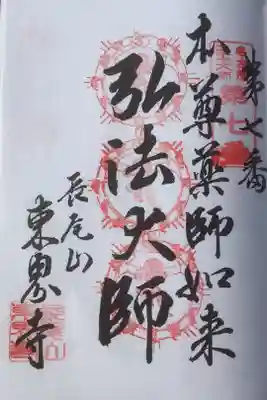 第七番
本尊薬師如来
弘法大師
長尾山
東 寺